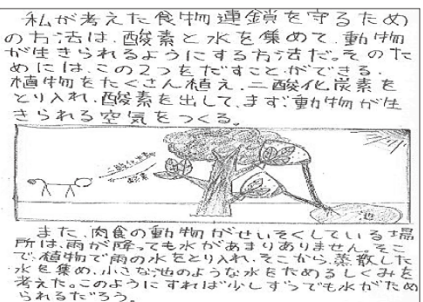 私が考えた食物連鎖を守るため
の方法は、酸素と水を集めて、動物
が生きられるようにする方法だ。そのた
めには、この2つをだすことができる、
植物をたくさん植え、二酸化炭素を
とり入れ、酸素を出して、まず動物が生
きられる空気をつくる。
二酸化炭素
酸素
池
また、肉食の動物がせいそくしている場
所は、雨が降っても水があまりありません。そこ
で、植物で雨の水をとり入れ、そこから、蒸散した
水を集め、小さな池のような水をためるしくみを
考えた。このようにすれば少しずつでも水がため
られるだろう。